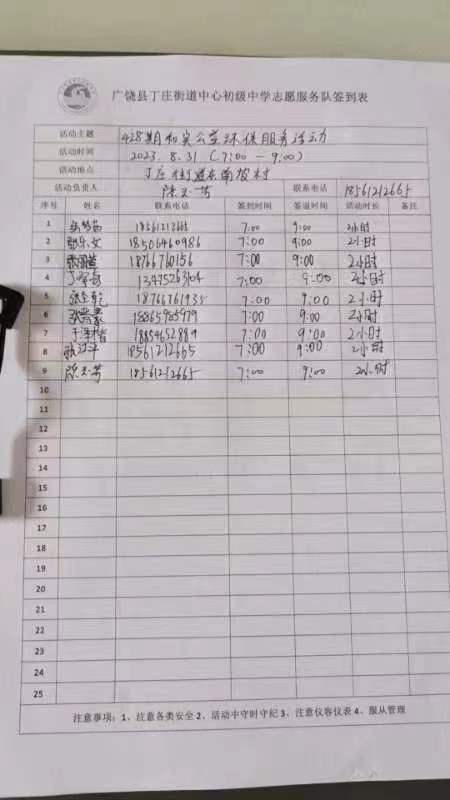 广饶县丁庄街道中心初级中学志愿服务队签到表
活动主题 428期和实公益环保服务活动
活动时间 2023.8.31（7:00－9:00）
活动地点 丁庄街道东南坡村
活动负责人 联系电话 18561212665
序号 姓名 联系电话 签到时间 签退时间 活动时长 备注
1 18561212665 7:00 9:00 2小时
2 18506460986 7:00 9:00 2小时
3 18766760156 7:00 9:00 2小时
4 13475263104 7:00 9:00 2小时
5 18766761935 7:00 9:00 2小时
6 7:00 9:00 2小时
7 18854652884 7:00 9:00 2小时
8 18561212665 7:00 9:00 2小时
9 18561212665 7:00 9:00 2小时
10
11
12
13
14
15
16
17
18
19
20
21
22
23
24
25
注意事项：1、注意各类安全 2、活动中守时守纪 3、注意仪容仪表 4、服从管理